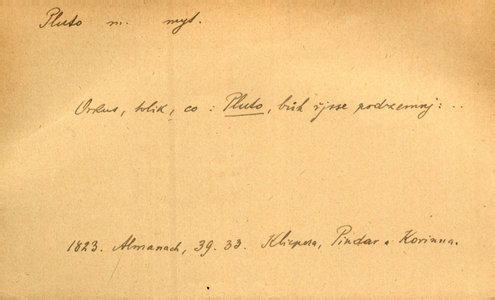 Pluto m. myt.
Orkus, tolik, co : Pluto, bůh řísse podzemnj : ..
1823. Almanach, 39. 33. Klicpera, Pindar a Korinna.